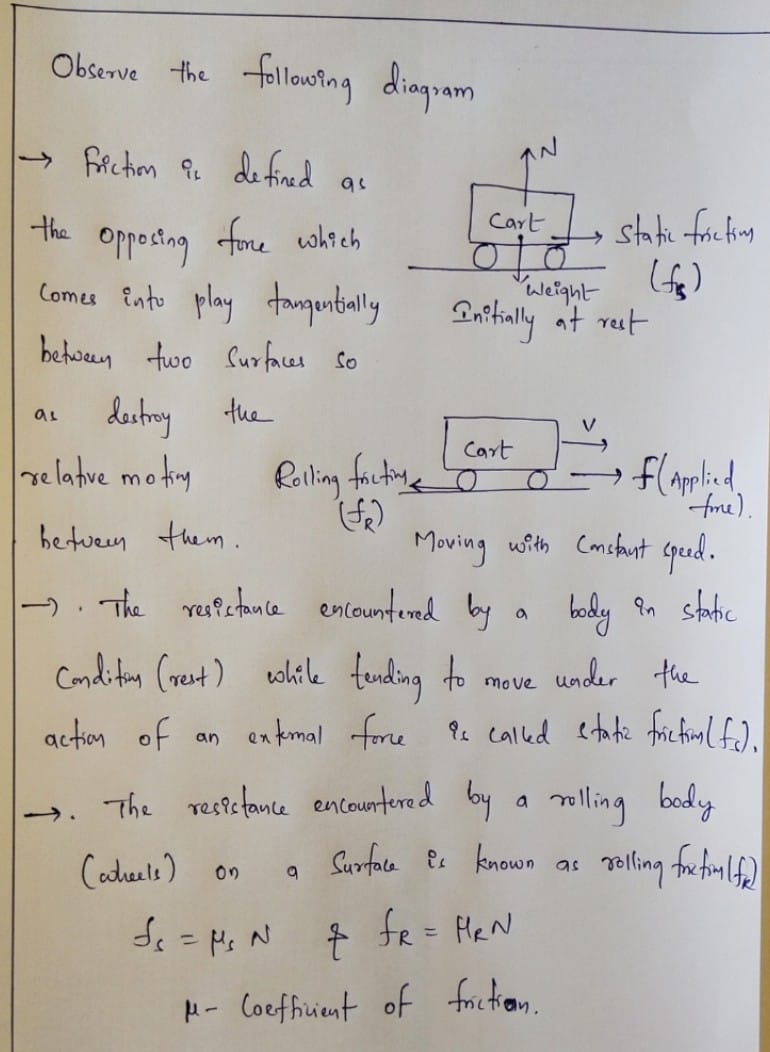 Observe the following diagram
→ Friction is defined as
the opposing force which
comes into play tangentially
between two surfaces so
as destroy the
relative motion
between them.
N
Cart
Static friction
(fs)
Weight
Initially at rest
Cart
V
Rolling friction
(fR)
f(Applied
force).
Moving with Constant speed.
→. The resistance encountered by a body in static
Condition (rest) while tending to move under the
action of an external force is called static friction(fs).
→. The resistance encountered by a rolling body
(wheels) on a Surface is known as rolling friction(fR)
fs = μs N & fR = μR N
μ - Coefficient of friction.